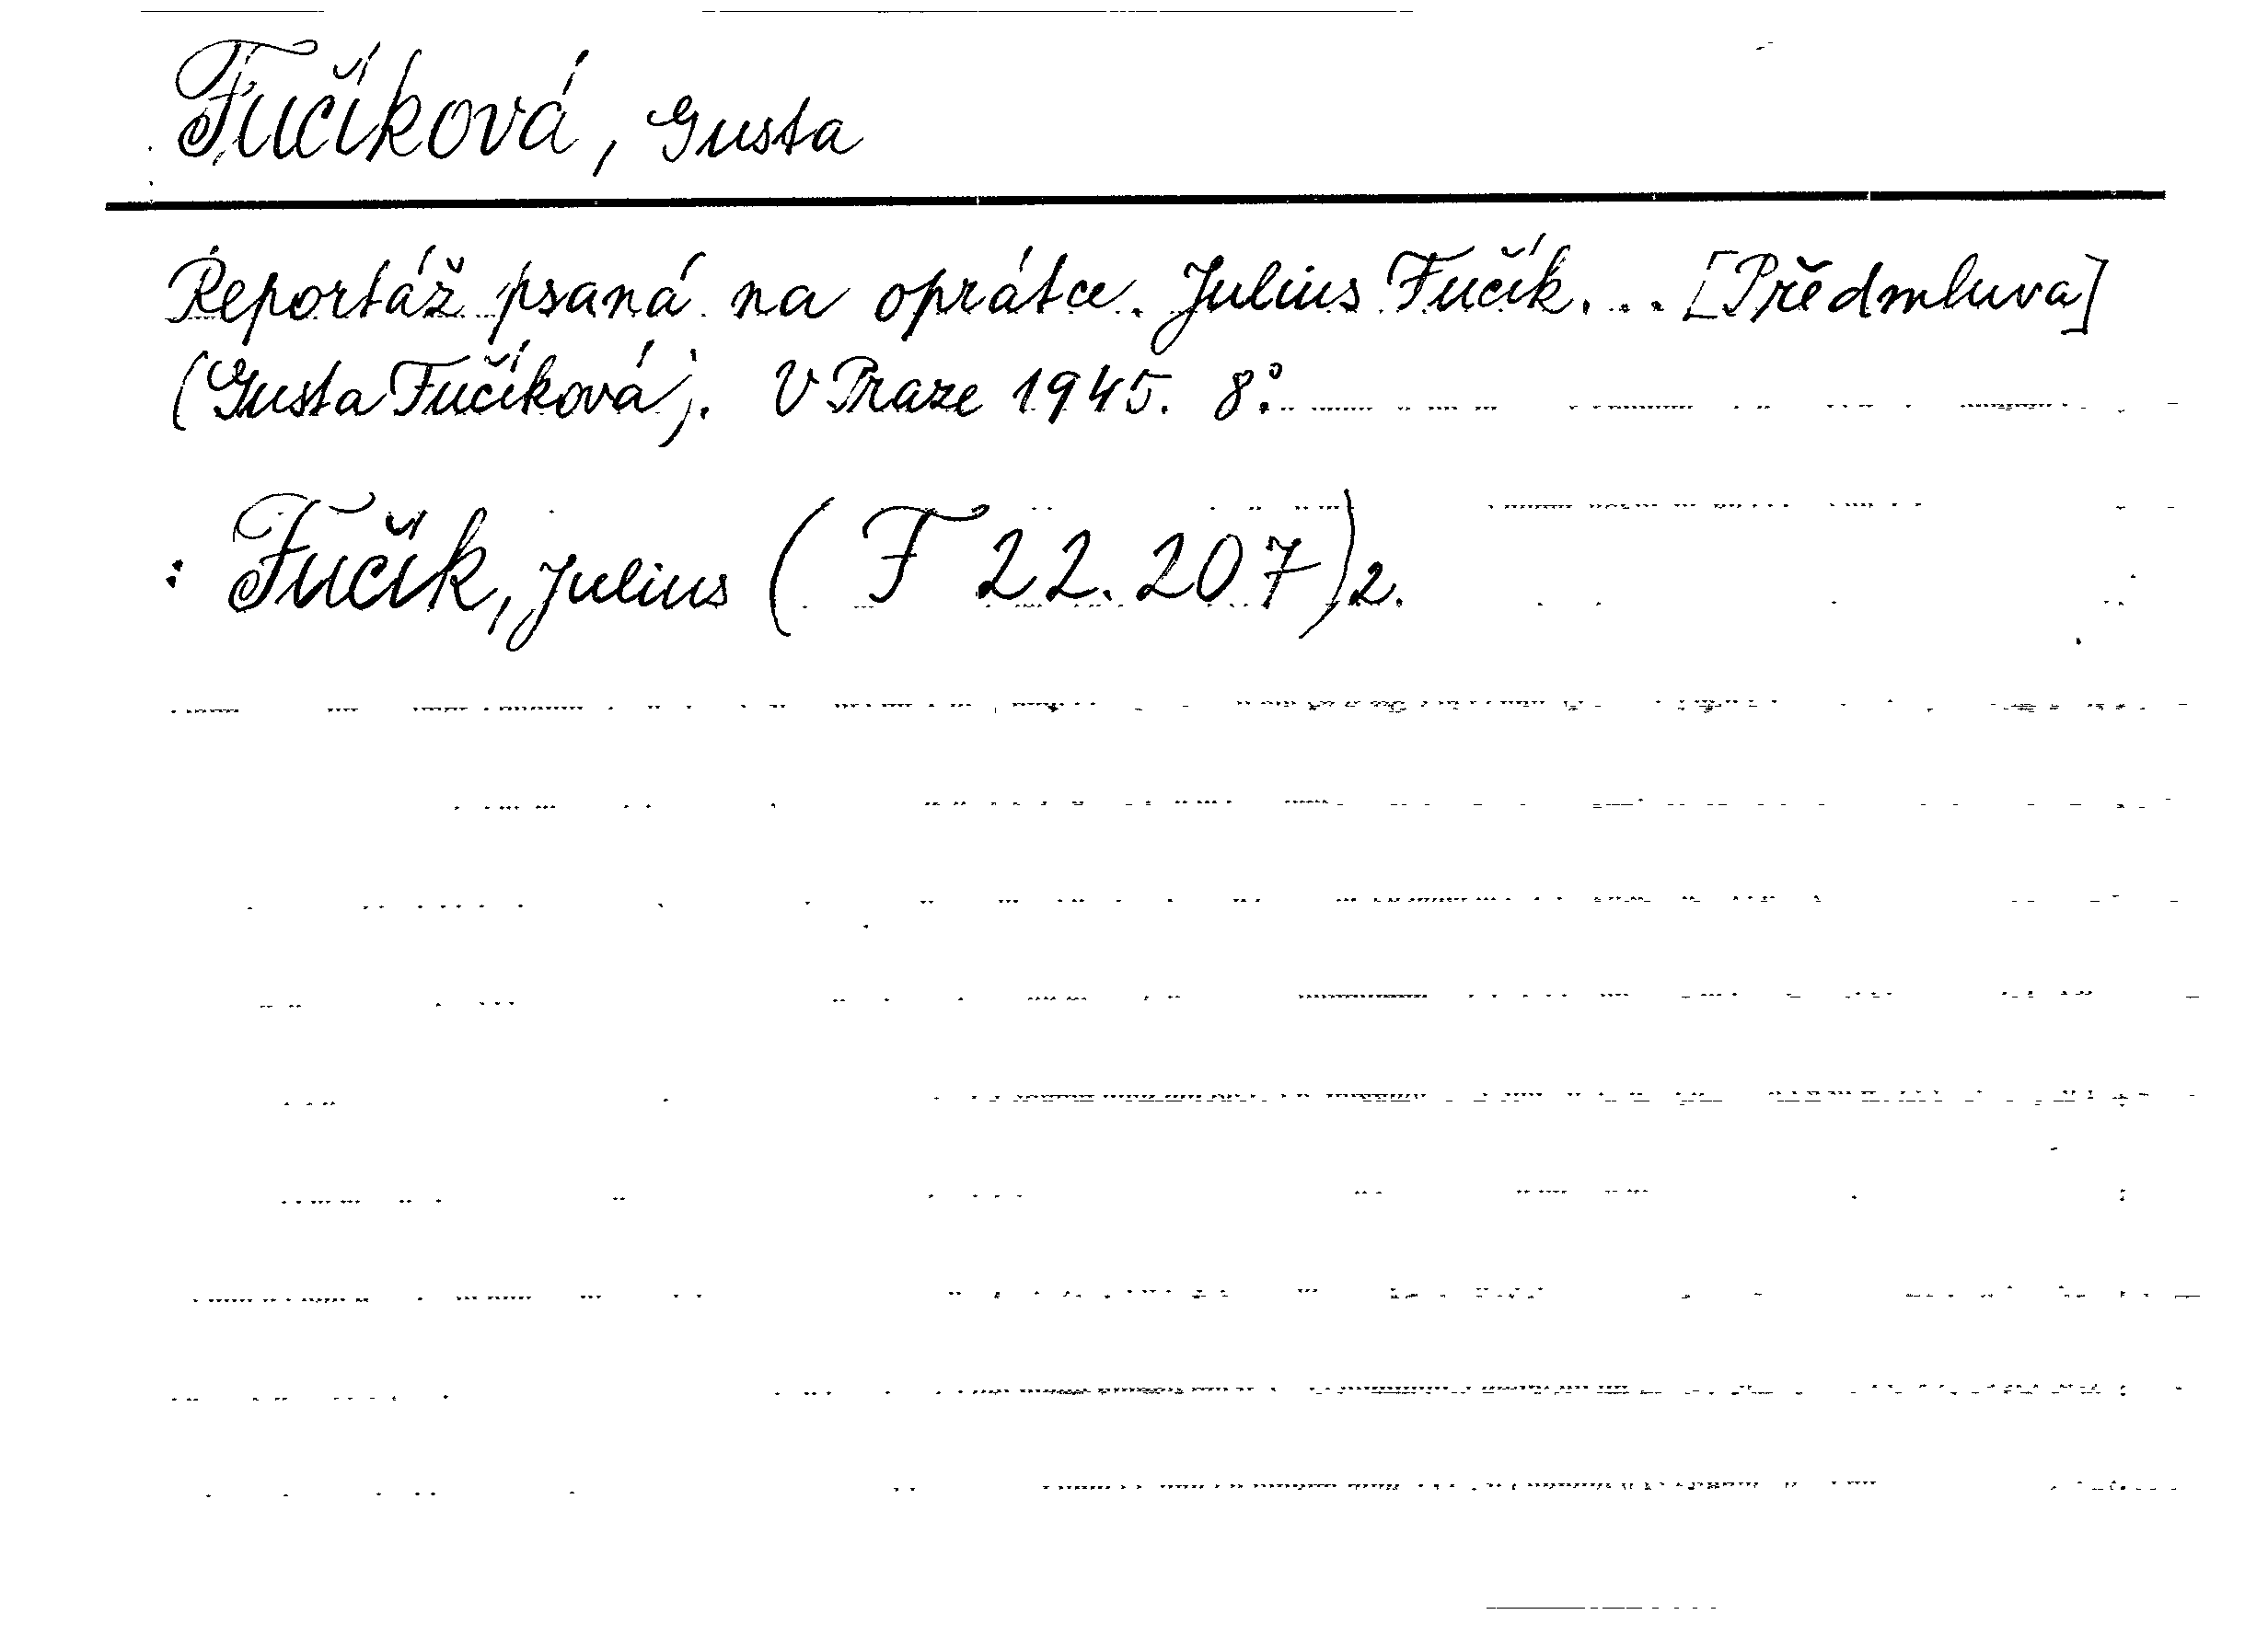 Fučíková, Gusta
Reportáž psaná na oprátce. Julius Fučík... [Předmluva]
(Gusta Fučíková). V Praze 1945. 8°.
: Fučík, Julius (F 22.207)2.